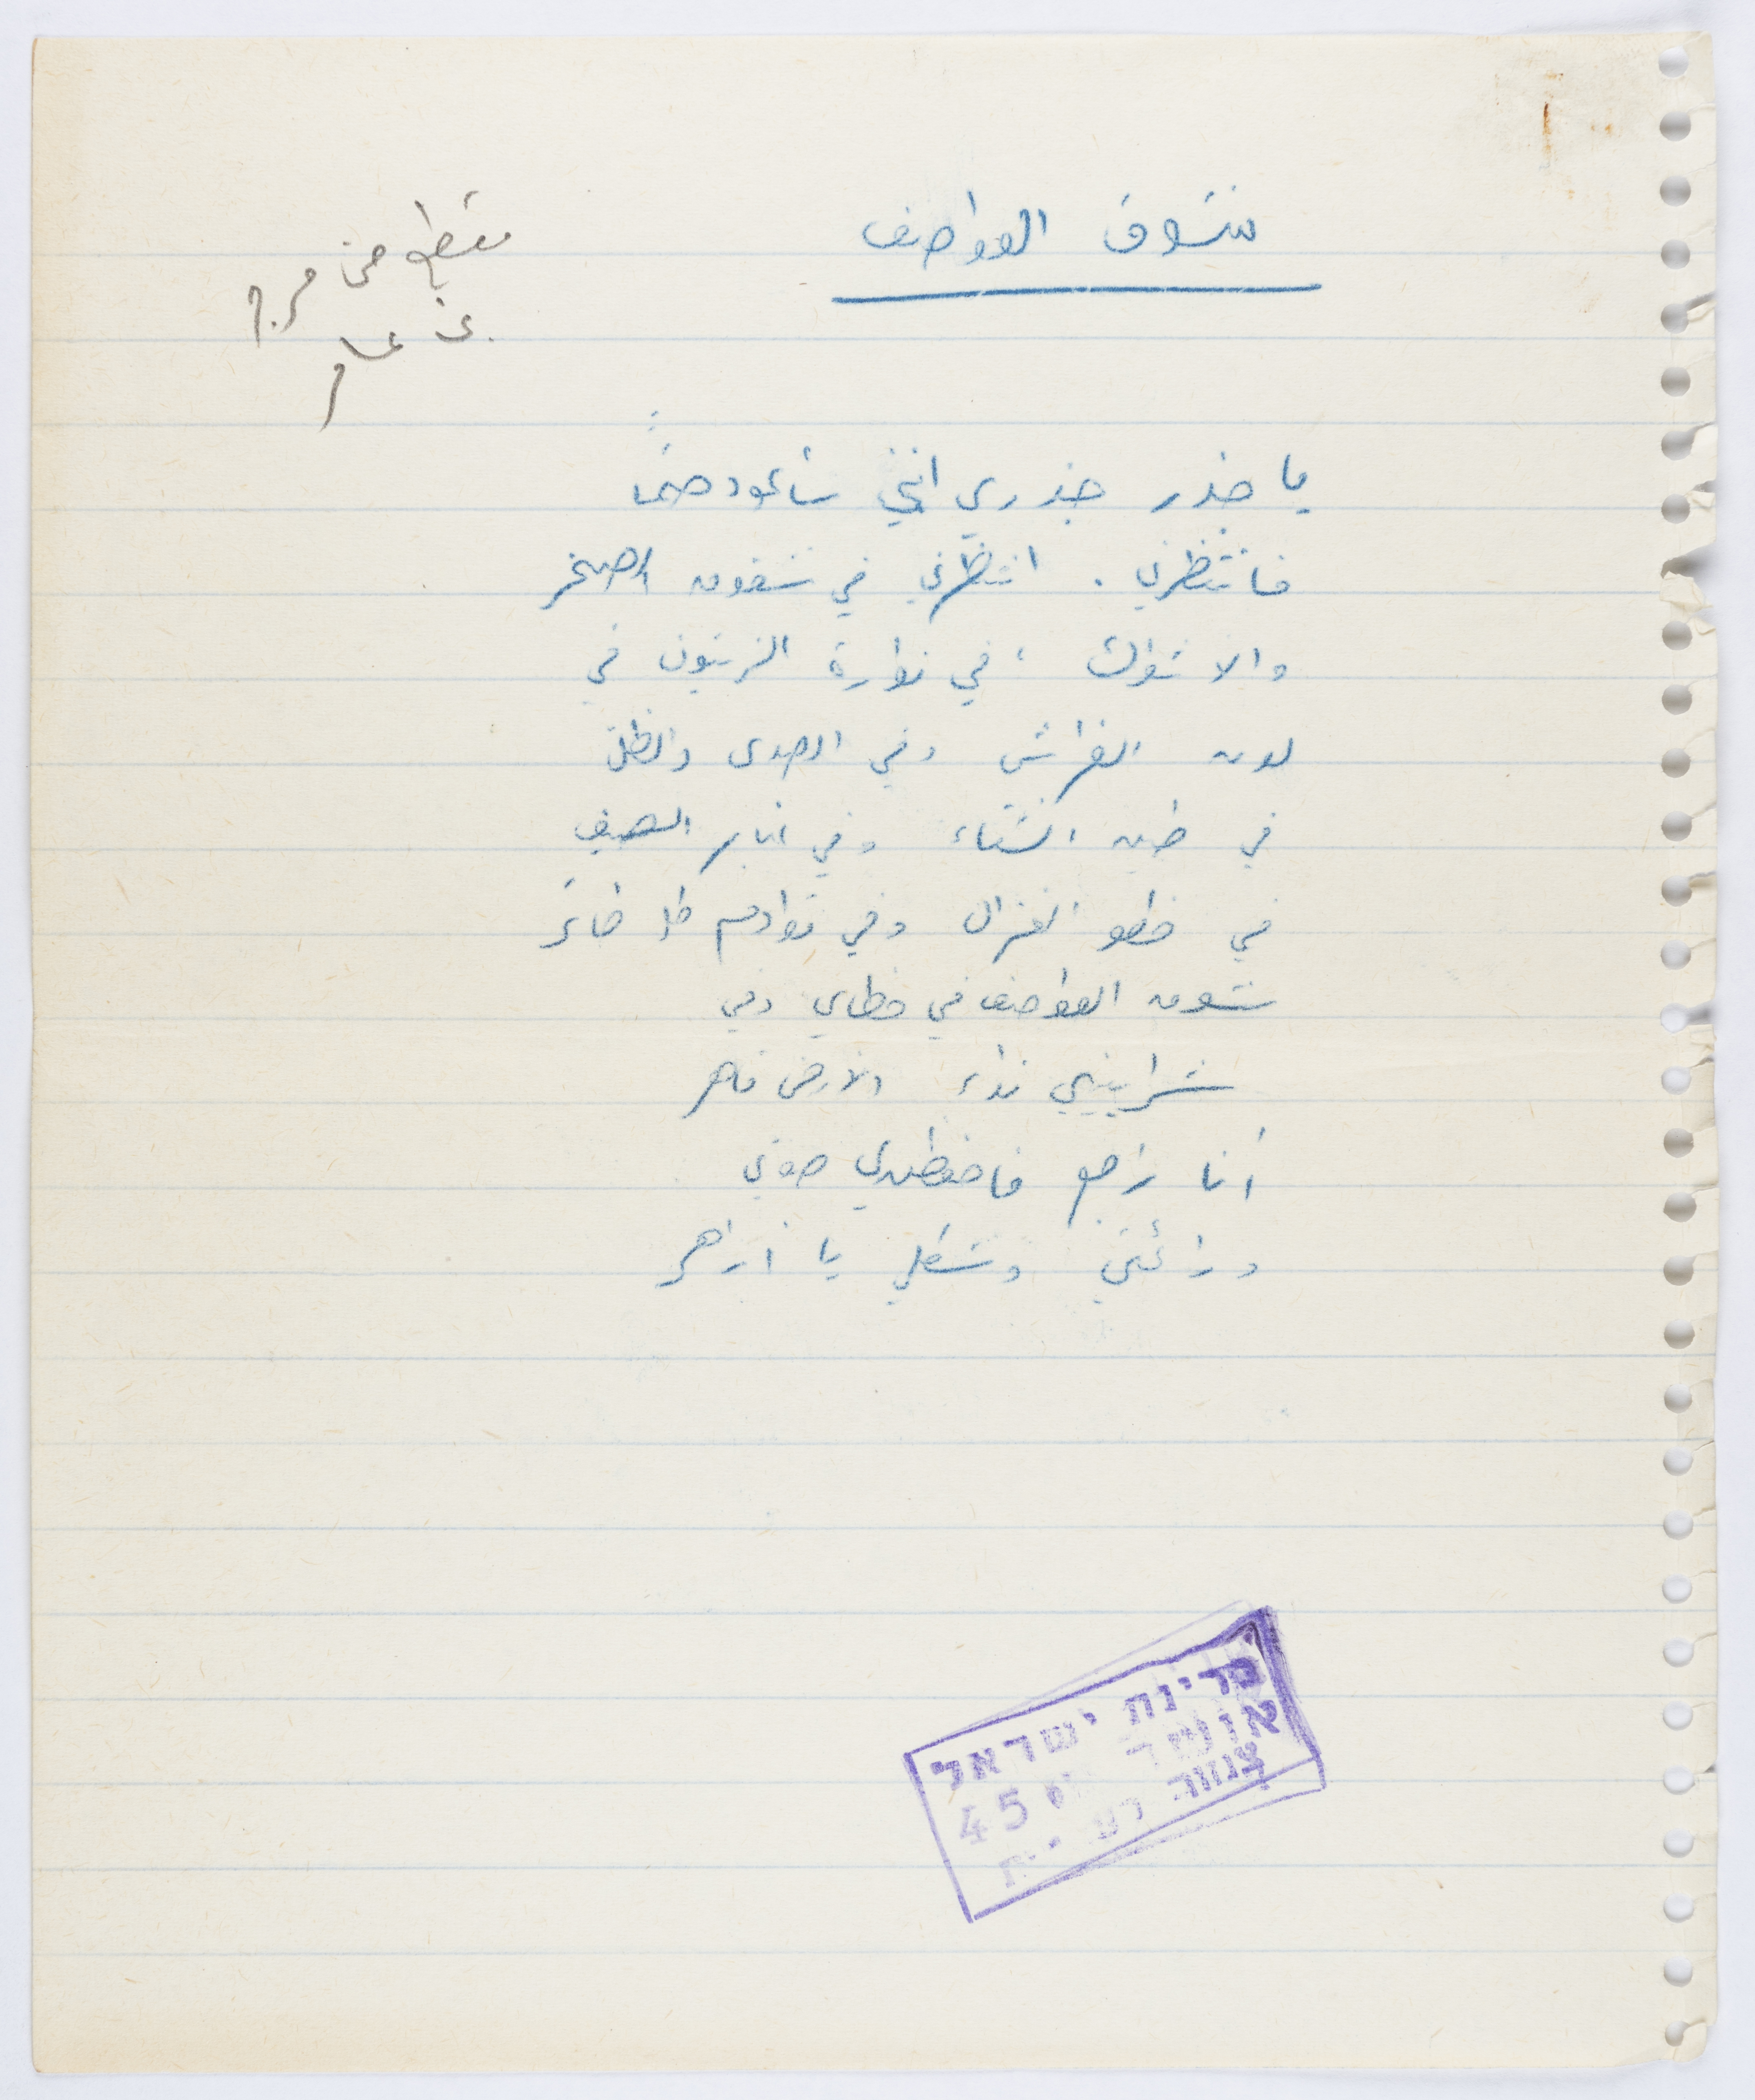 شوق العواصف
مقطع من مرج
بن عامر
يا جذر جذري انني سأعود حتماً
فانتظرني . انتظرني في شقوق الصخر
والاشواك ، في نوارة الزيتون في
لون الفراش وفي الصدى والظل
في طين الشتاء وفي غبار الصيف
في خطو الغزال وفي قوادم كل طائر
شوق العواصف في خطاي وفي
شراييني نداء الارض قاهر
أنا راجع فاحفظي لي صوتي
ورائحتي وشكلي يا ازاهر
מדינת ישראל
45